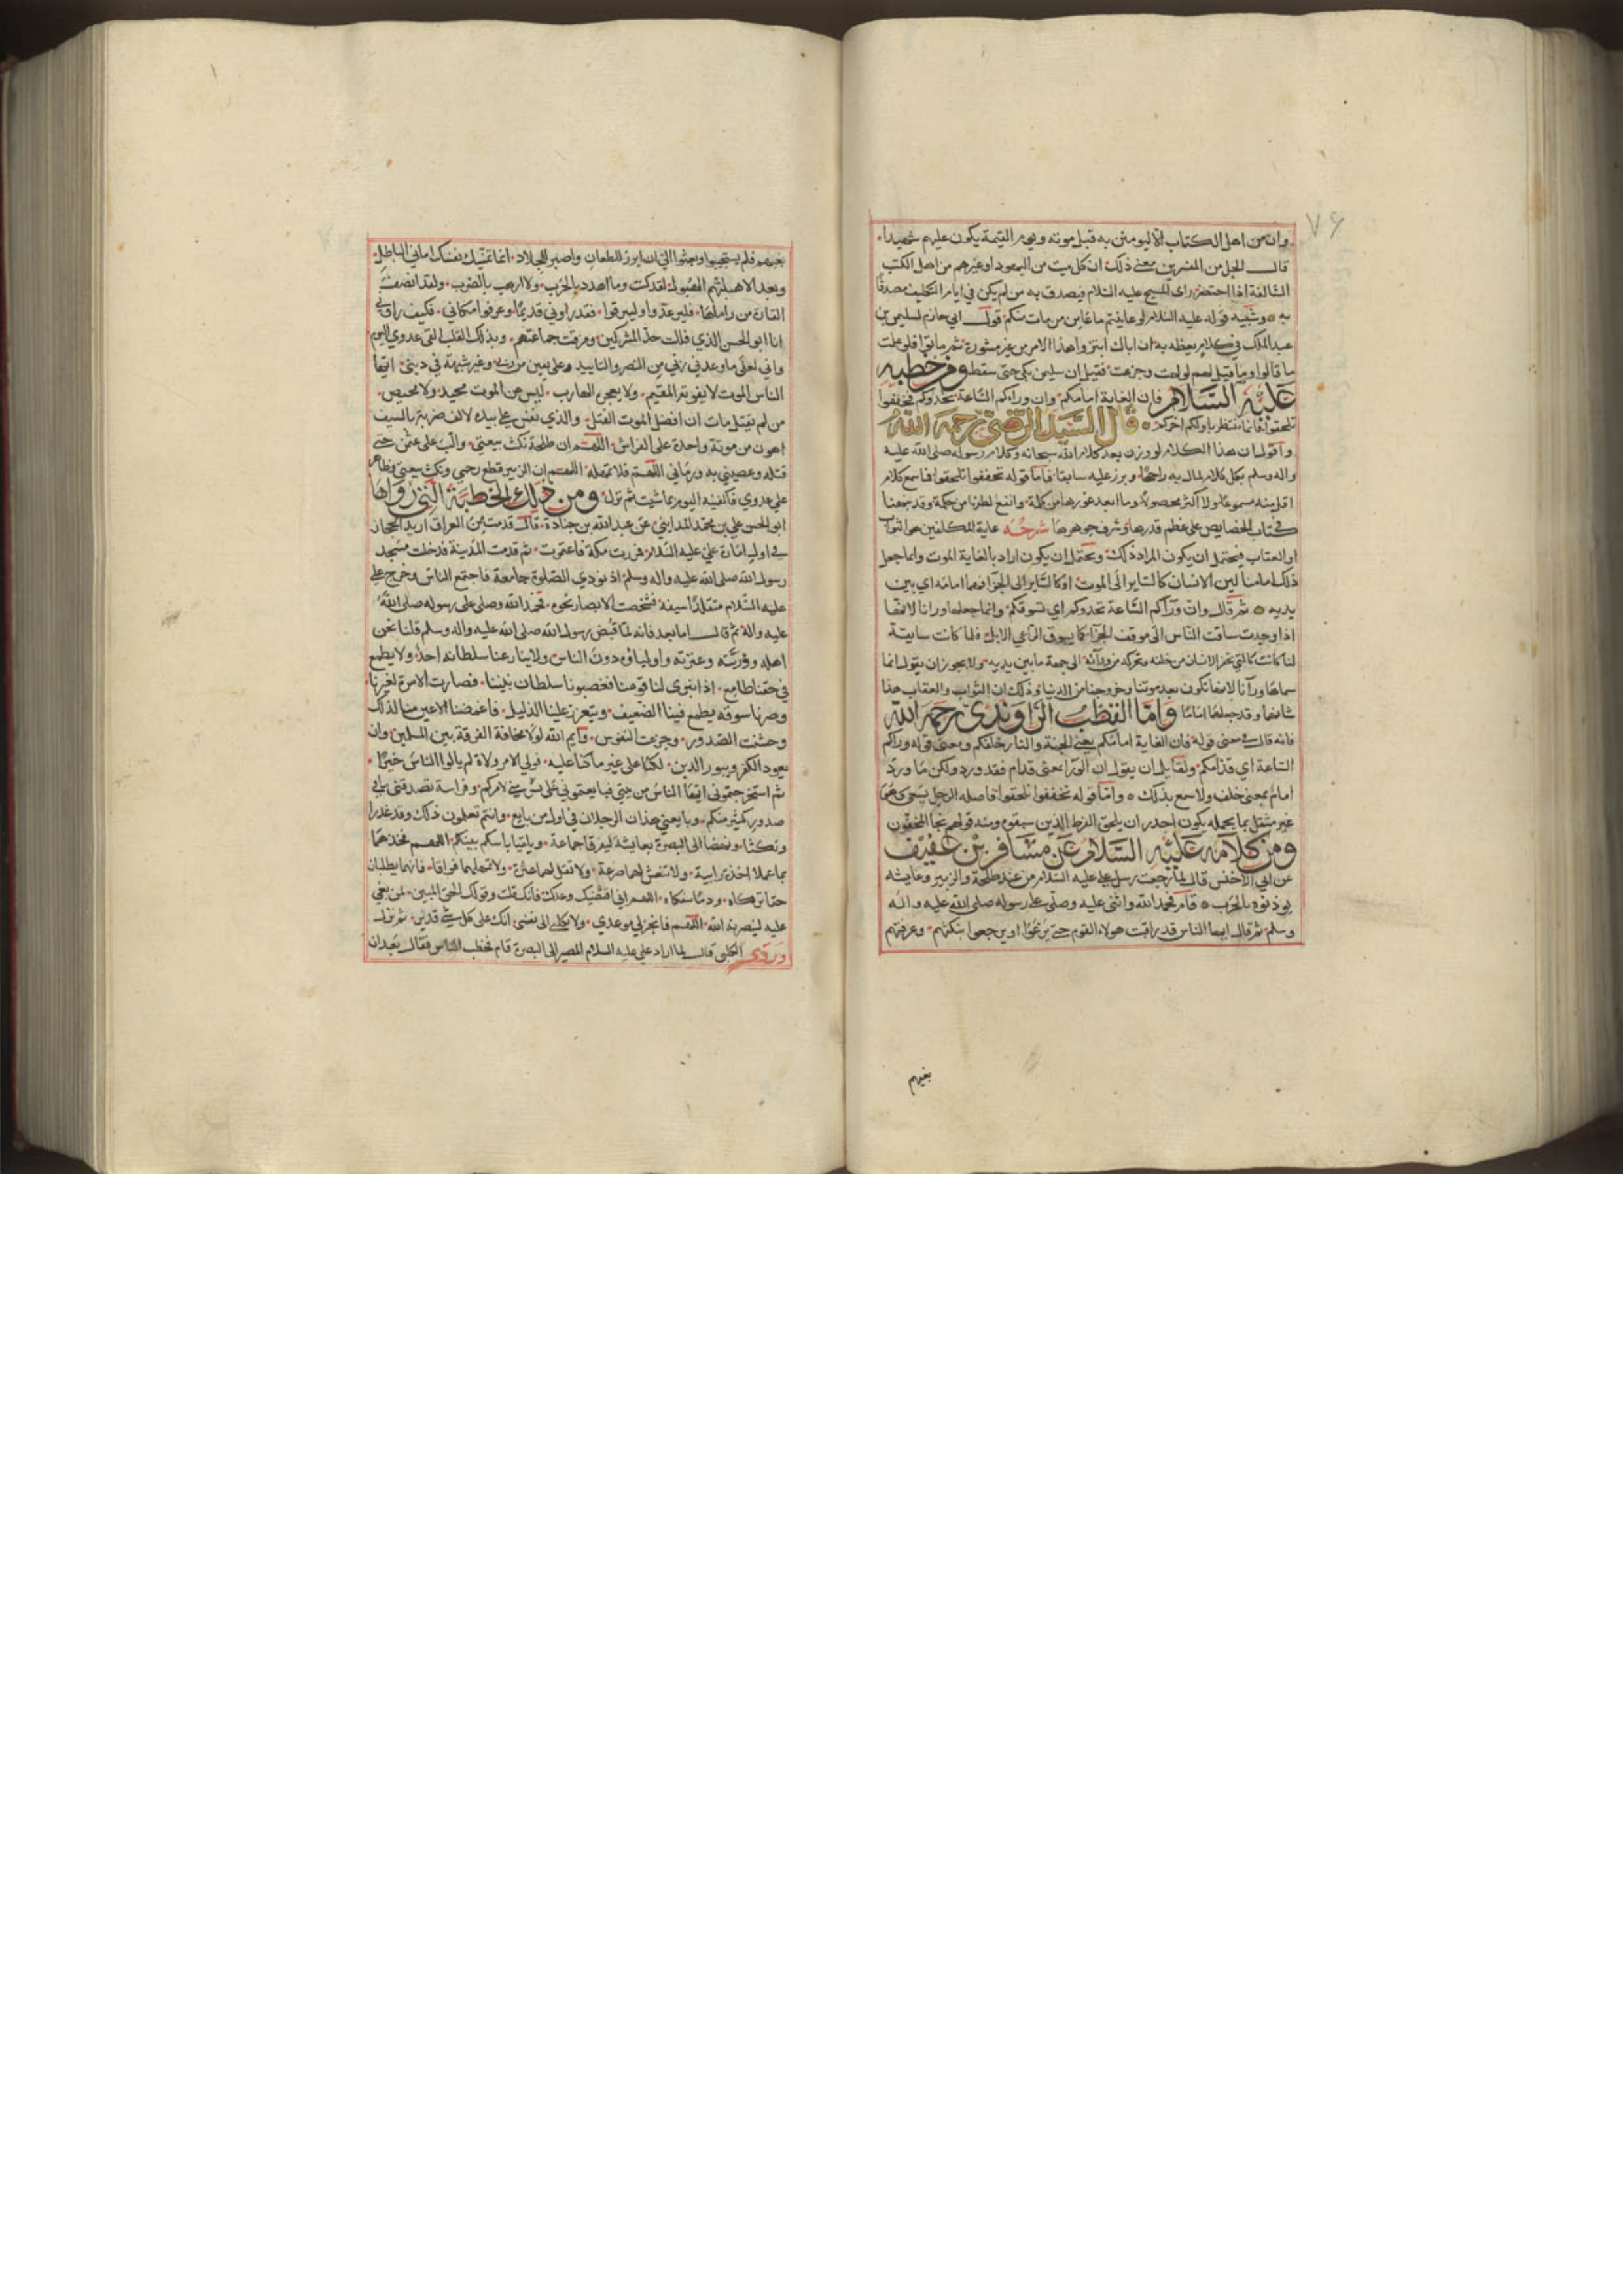 ٧۶
وان من اهل الكتاب الا ليومنن به قبل موته ويوم القيمة يكون عليهم شهيدا
قال الجل من المفسرين معنى ذلك ان كل ميت من اليهود او غيرهم من اهل الكتب
السالفة اذا احتضر راى المسيح عليه السلام فيصدق به من لم يكن في ايام التكليف مصدقا
به وشبيه قوله عليه السلام لو عاينتم ما عاين من مات منكم قول ابي حازم لسليمن بن
عبد الملك في كلام يعظه به ان اباك ابتزوا هذا الامر من غير مشورة ثم ماتوا فلو علمت
ما قالوا وما قيل لهم فقيل ان سليمن بكى حتى سقط ومن خطبه
عليه السلام فان الغاية امامكم وان وراءكم الساعة تحدوكم تخففوا
تلحقوا فانما ينتظر باولكم اخركم قال السيد الرضي رحمه الله
واقول ان هذا الكلام لو وزن بعد كلام الله سبحانه وكلام رسوله صلى الله عليه
واله وسلم بكل كلام لمال به راجحا وبرز عليه سابقا فاما قوله تخففوا تلحقوا فما سمع كلام
اقل منه مسموعا ولا اكثر محصولا وما ابعد غورها من كلمة وانقع نطفتها من حكمة وقد نبهنا
في كتاب الخصايص على عظم قدرها وشرف جوهرها شرحه غاية المكلفين هي الثواب
او العقاب فيحتمل ان يكون المراد ذلك ويحتمل ان يكون اراد بالغاية الموت وانما جعل
ذلك امامنا لان الانسان كالساير الى الموت او كالساير الى الجزا فهما امامه اي بين
يديه ثم قال وان وراكم الساعة تحدوكم اي تسوقكم وانما جعلها ورانا لانها
اذا وجدت ساقت الناس الى موقف الجزا كما يسوق الراعي الابل فلما كانت سايقة
لنا كانت كالشي يحفز الانسان من خلفه ويحركه من ورآئه الى جهة ما بين يديه ولا يجوز ان يقول انما
سماها ورآنا لانها تكون بعد موتنا وخروجنا من الدنيا وذلك ان الثواب والعقاب هذا
شانهما وقد جعلها امامنا واما القطب الراوندي رحمه الله
فانه قال في معنى قوله فان الغاية امامكم يعني الجنة والنار خلفكم ومعنى قوله وراكم
الساعة اي قدامكم ولقايل ان يقول ان الورا بمعنى قدام فقد ورد ولكن ما ورد
امام بمعنى خلف ولا سمع بذلك واما قوله تخففوا تلحقوا فاصله الرجل يسعى وهو
غير مثقل بما يحمله يكون اجدر ان يلحق الذين سبقوه ومنه قولهم نجا المخفون
ومن كلامه عليه السلام عن مسافر بن عفيف
عن ابي الاخنس قال لما رجعت رسل علي عليه السلام من عند طلحة والزبير وعايشه
يوذنونه بالحرب قام فحمد الله واثنى عليه وصلى على رسوله صلى الله عليه واله
وسلم ثم قال ايها الناس قد راقبت هولاء القوم حتى يرعووا او يرجعوا بنكثهم وعرفتهم
بغيهم
بغيهم فلم يستجيبوا وبعثوا الي ان ابرز للطعان واصبر للجلاد انما تمنيك نفسك اماني الباطل
لقد كنت وما اهدد بالحرب ولا ارهب بالضرب ولقد انصف
القارة من راماها فليرعدوا وليبرقوا فقد راوني قديما وعرفوا مكاني فكيف راوني
انا ابو الحسن الذي فللت حد المشركين وفرقت جماعتهم وبذلك القلب القى عدوي اليوم
واني لعلى ما وعدني ربي من النصر والتاييد وعلى يقين من ربي وغير شبهة في ديني ايها
الناس الموت لا يفوته المقيم ولا يعجزه الهارب ليس عن الموت محيد ولا محيص
من لم يقتل مات ان افضل الموت القتل والذي نفس علي بيده لالف ضربة بالسيف
اهون من موتة واحدة على الفراش اللهم ان طلحة نكث بيعتي والب على عثمن حتى
قتله وعضهني به ورماني اللهم فلا تمهله اللهم ان الزبير قطع رحمي ونكث بيعتي وظاهر
علي عدوي فاكفنيه اليوم بما شيت ثم نزل ومن ذلك الخطبة التي رواها
ابو الحسن علي بن محمد المدايني عن عبد الله بن جنادة قال قدمت من العراق اريد الحجاز
في اول امارة علي عليه السلام فمررت بمكة فاعتمرت ثم قدمت المدينة فدخلت مسجد
رسول الله صلى الله عليه واله وسلم اذ نودي الصلوة جامعة فاجتمع الناس وخرج علي
عليه السلام متقلدا سيفه فشخصت الابصار نحوه فحمد الله وصلى على رسوله صلى الله
عليه واله ثم قال اما بعد فانه لما قبض رسول الله صلى الله عليه واله وسلم قلنا نحن
اهله وورثته وعترته واولياؤه دون الناس ولا ينازعنا سلطانه احد ولا يطمع
في حقنا طامع اذ انبرى لنا قومنا فغصبونا سلطان نبينا فصارت الامرة لغيرنا
وصرنا سوقه يطمع فينا الضعيف ويتعزز علينا الذليل الاعين منا لذلك
وخشنت الصدور وجزعت النفوس وايم الله لولا مخافة الفرقة بين المسلمين وان
يعود الكفر ويبور الدين لكنا على غير ما كنا عليه فولي الامر ولاة لم يالوا الناس خيرا
ثم استخرجتموني ايها الناس من بيتي فبايعتموني على شين مني لامركم وفراسة تصدقني ما في
صدور كثير منكم وبايعني هذان الرجلان في اول من بايع وانتم تعلمون ذلك وقد غدرا
ونكثا ونهضا الى البصرة بعايشة ليفرقا جماعة ويلقيا باسكم بينكم اللهم فخذهما
بما عملا اخذة رابية ولا تنعش لهما صرعة ولا تقل لهما عثرة ولا تمهلهما فواقا فانهما يطلبان
حقا تركاه ودما سفكاه اللهم اني اقتضيك وعدك فانك قلت وقولك الحق المبين لمن بغي
عليه لينصرنه الله اللهم فانجز لي موعدي ولا تكلني الى نفسي انك على كل شي قدير ثم نزل
وروى الكلبي قال لما اراد علي عليه السلام المسير الى البصرة قام فخطب الناس فقال بعد ان